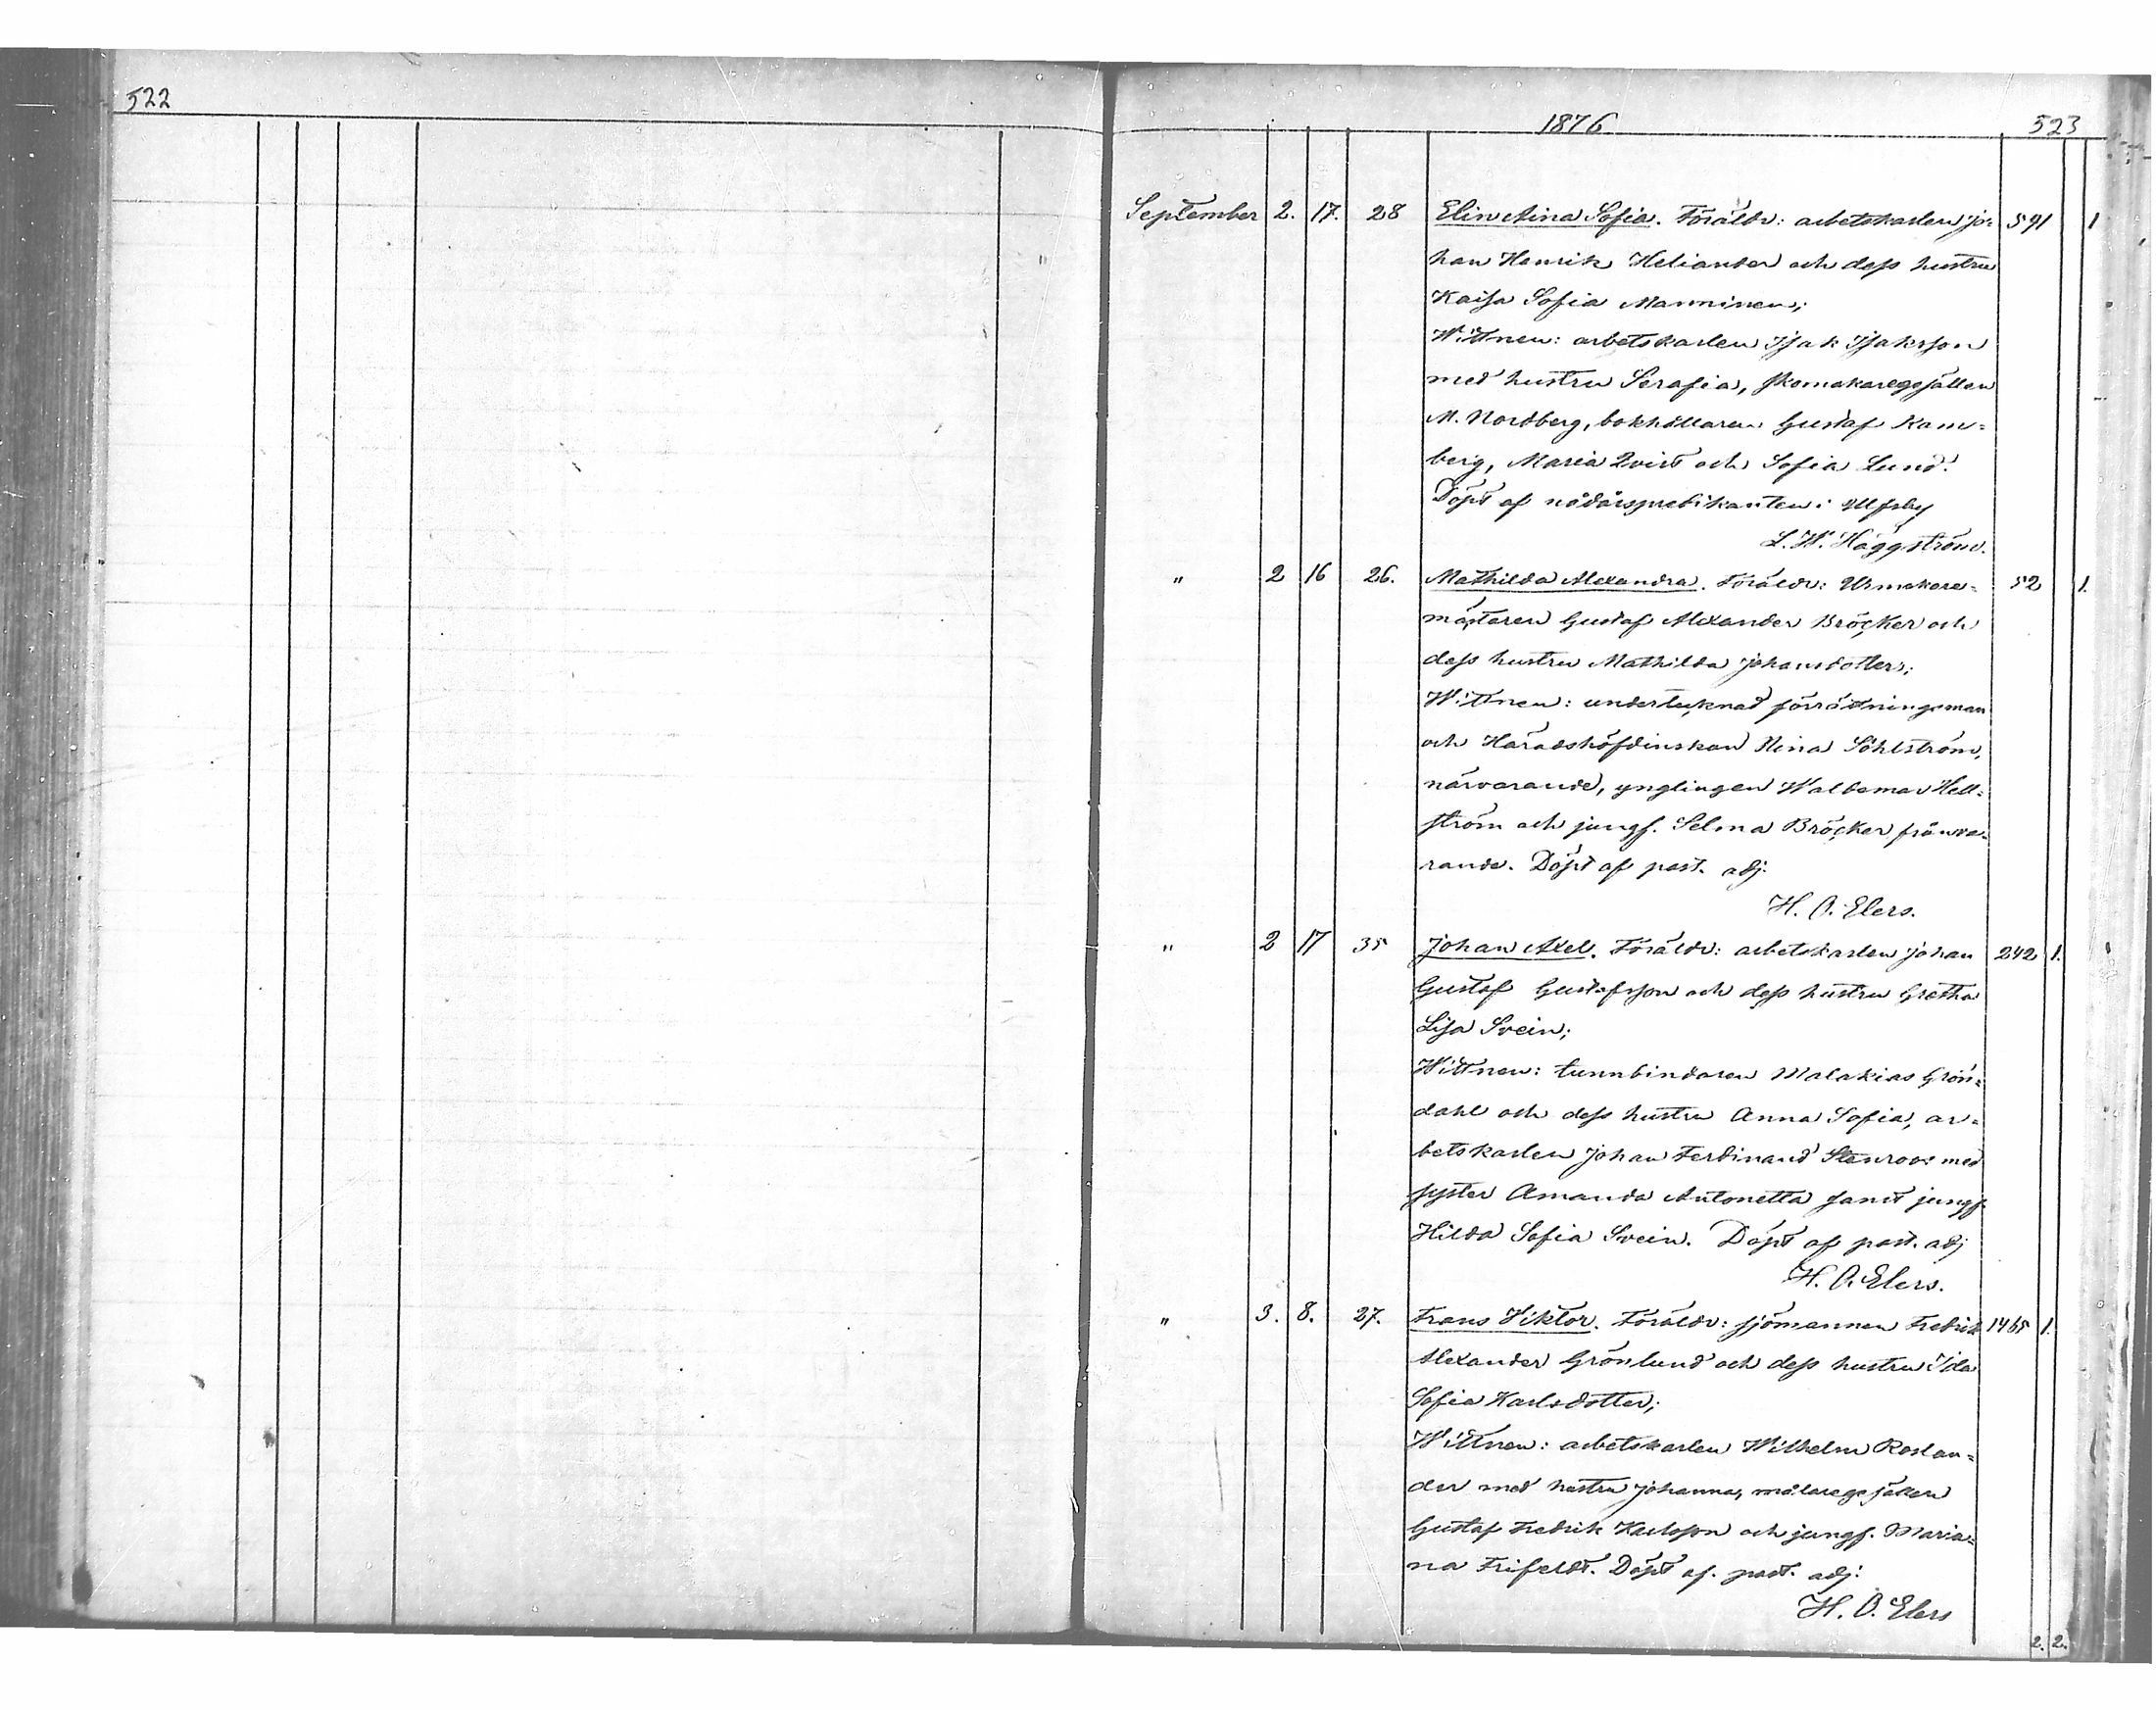 522
1876 523
September 2. 17. 28 Elin Aina Sofia. Föräldr: arbetskarlen Jo= 591 1
han Henrik Heliander och dess hustru
Kaisa Sofia Manninen;
Wittnen: arbetskarlen Isak Isaksson
med hustru Serafia, skomakaregesällen
M. Nordberg, bokhållaren Gustaf Ram=
berg, Maria Qvist och Sofia Lund.
Döpt af nödårspredikanten i Ulfsby
L. W. Häggström.
" 2 16 26. Mathilda Alexandra. Föräldr: Urmakare= 52 1.
mästaren Gustaf Alexander Bröcker och
dess hustru Mathilda Johansdotter;
Wittnen: undertecknad förrättningsman
och Häradshöfdinskan Nina Söhlström,
närvarande, ynglingen Waldemar Hell=
ström och jungf. Selma Bröcker frånva=
rande. Döpt af past. adj.
H. O. Elers.
" 2 17 35 Johan Axel. Föräldr: arbetskarlen Johan 242 1.
Gustaf Gustafsson och dess hustru Gretha
Lisa Svein;
Wittnen: tunnbindaren Malakias Grön=
dahl och dess hustru Anna Sofia, ar=
betskarlen Johan Ferdinand Stenroos med
syster Amanda Antonetta samt jungf.
Hilda Sofia Svein. Döpt af past. adj
H. O. Elers.
" 3. 8. 27. Frans Viktor. Föräldr: sjömannen Fredrik 1465 1.
Alexander Grönlund och dess hustru Ida
Sofia Karlsdotter;
Wittnen: arbetskarlen Wilhelm Roslan=
der med hustru Johanna, målaregesällen
Gustaf Fredrik Karlsson och jungf. Maria=
na Frifeldt. Döpt af. past. adj:
H. O. Elers
2. 2.